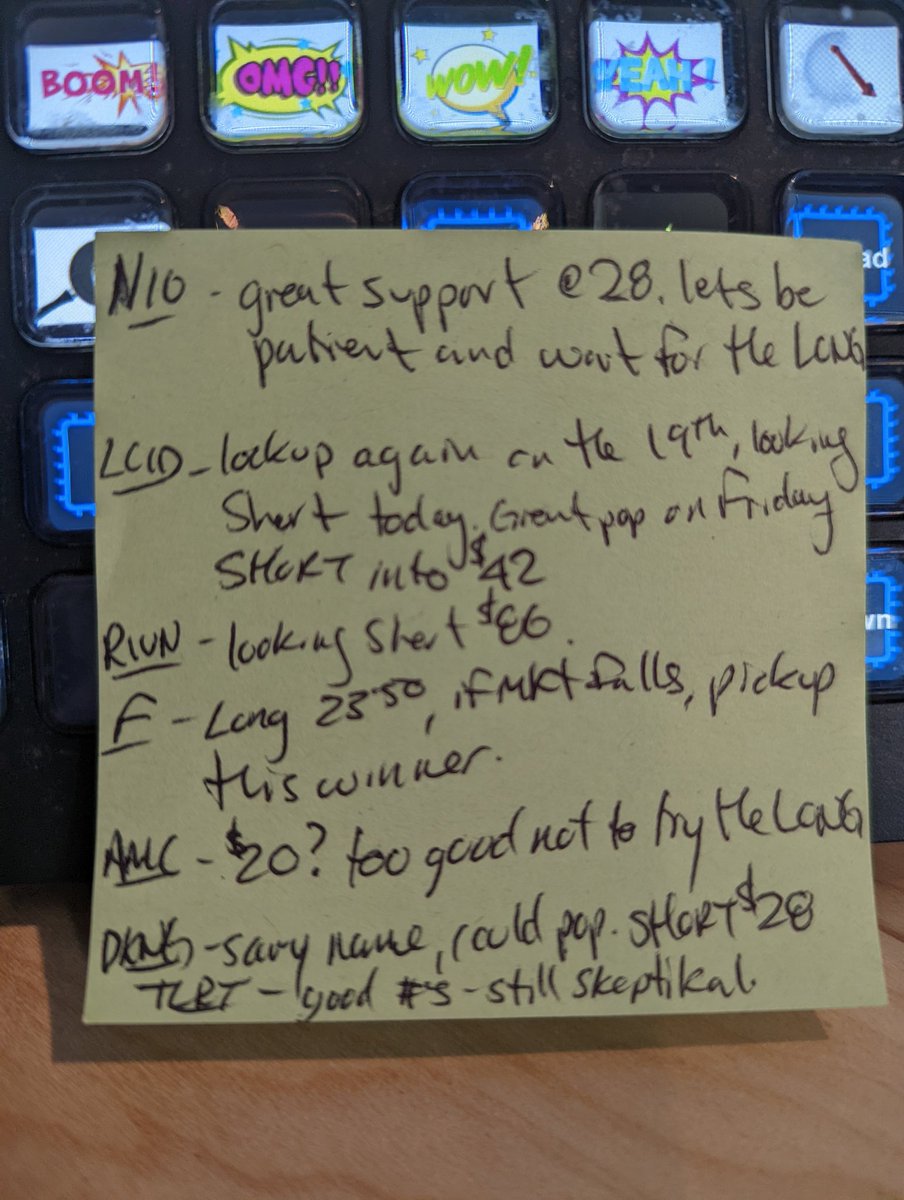 BOOM!
OMG!!
WOW!
YEAH!
ad
NIO - great support @ 28. lets be
patient and wait for the LONG
LCID - lockup again on the 19th, looking
Short today. Great pop on Friday
SHORT into $42
wn
RIVN - looking Short $86.
F - Long 23.50, if MKT falls, pickup
this winner.
AMC - $20? too good not to try the LONG
DKNG - savy name, could pop. SHORT $28
TLRT - good #'s - still skeptikal.